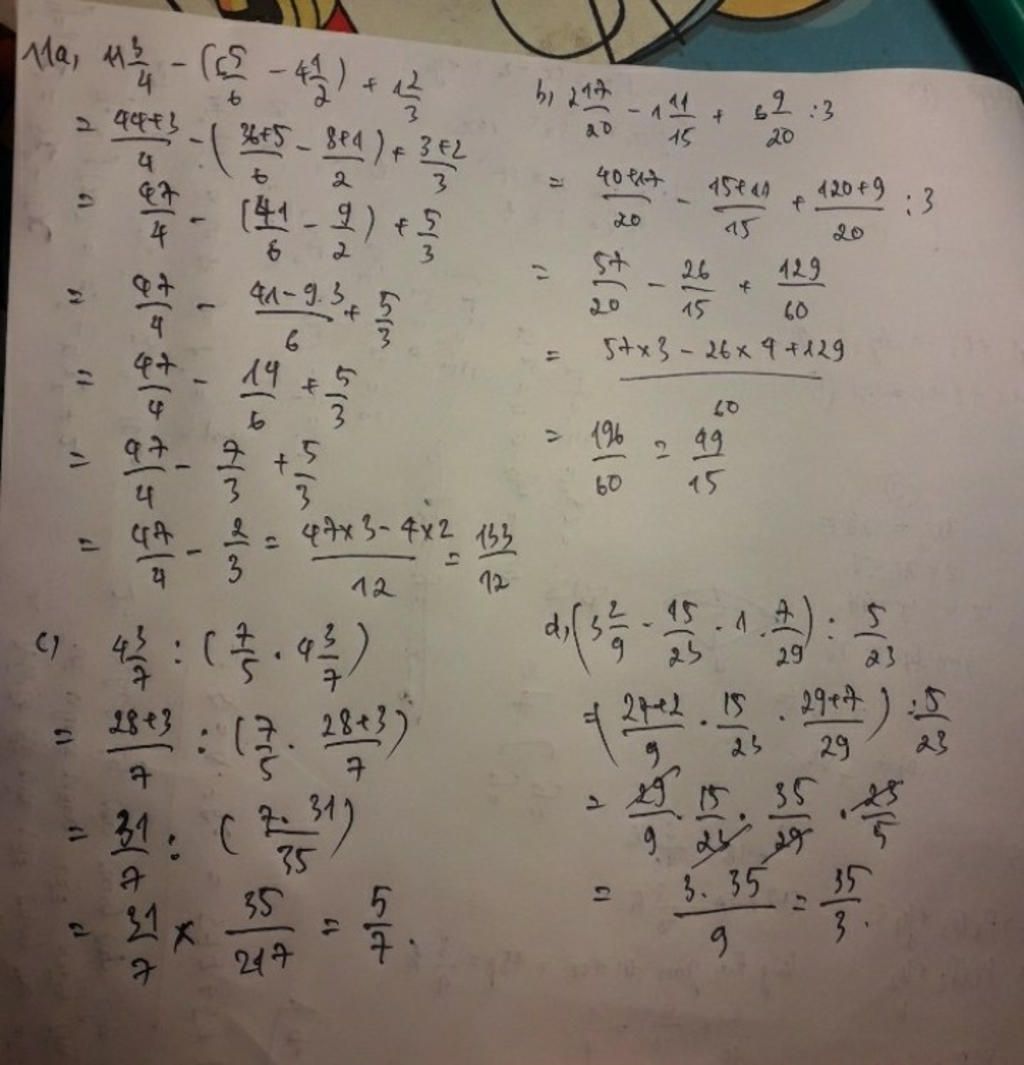 11a, 11 3/4 - (6 5/6 - 4 1/2) + 1 2/3
= (44+3)/4 - ((36+5)/6 - (8+1)/2) + (3+2)/3
= 47/4 - (41/6 - 9/2) + 5/3
= 47/4 - (41-9.3)/6 + 5/3
= 47/4 - 14/6 + 5/3
= 47/4 - 7/3 + 5/3
= 47/4 - 2/3 = (47x3-4x2)/12 = 133/12
b, 2 17/20 - 1 11/15 + 6 9/20 : 3
= (40+17)/20 - (15+11)/15 + (120+9)/20 : 3
= 57/20 - 26/15 + 129/60
= (57x3-26x4+129)/60
= 196/60 = 49/15
c, 4 3/7 : (7/5 . 4 3/7)
= (28+3)/7 : (7/5 . (28+3)/7)
= 31/7 : (7.31)/35
= 31/7 x 35/217 = 5/7.
d, (3 2/9 . 15/23 . 1 . 7/29) : 5/23
= ((27+2)/9 . 15/23 . (29+7)/29) : 5/23
= 29/9 . 15/23 . 35/29 . 23/5
= (3.35)/9 = 35/3.